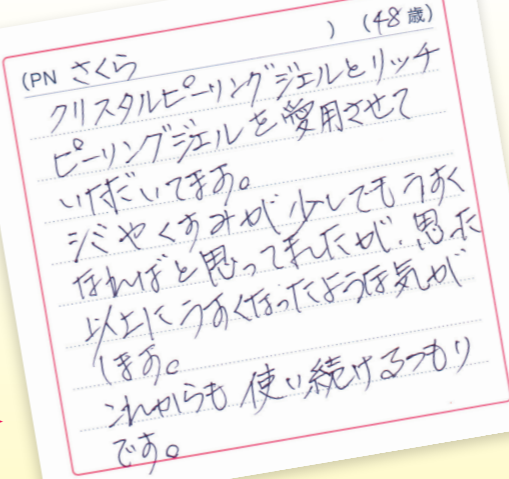 (PN さくら ) (48歳)
クリスタルピーリングジェルとリッチ
ピーリングジェルを愛用させて
いただいてます。
シミやくすみが少しでもうすく
なればと思ってましたが、思った
以上にうすくなったような気が
します。
これからも使い続けるつもり
です。